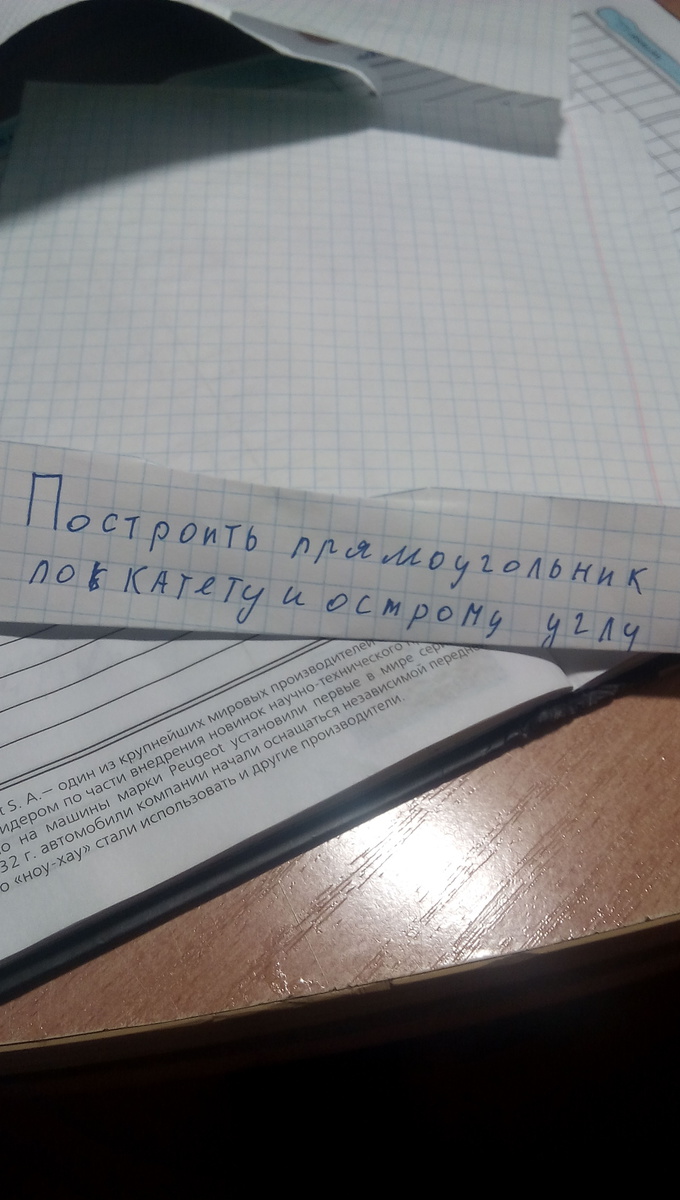 Построить прямоугольник
по катету и острому углу
т S. A.— один из крупнейших мировых производителей
идером по части внедрения новинок научно-технического
о на машины марки Peugeot установили первые в мире сер
32 г. автомобили компании начали оснащаться независимой передн
о «ноу-хау» стали использовать и другие производители.